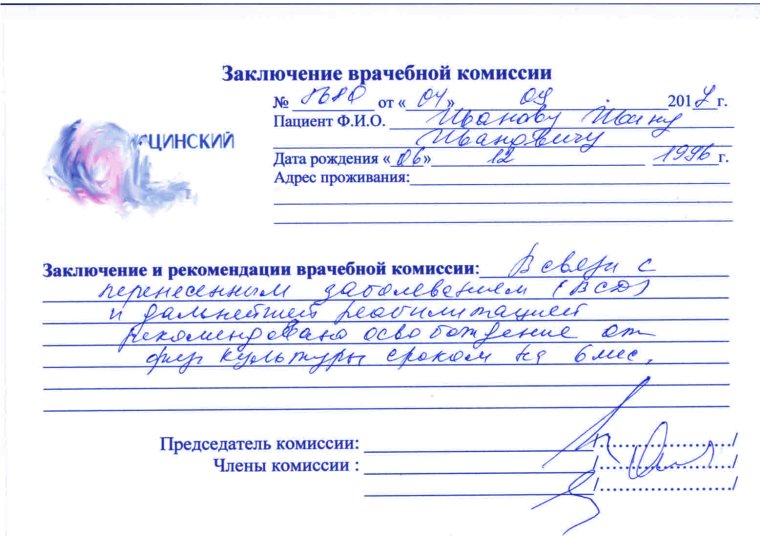 Заключение врачебной комиссии
№ от « 04 » 09 2017 г.
Пациент Ф.И.О. Иванову Ивану
Ивановичу
ЦИНСКИЙ
Дата рождения « 06 » 12 1996 г.
Адрес проживания:
Заключение и рекомендации врачебной комиссии: В связи с
перенесенным заболеванием (ВСД)
и дальнейшей реабилитацией
рекомендовано освобождение от
физ культуры сроком на 6 мес.
Председатель комиссии:
Члены комиссии :